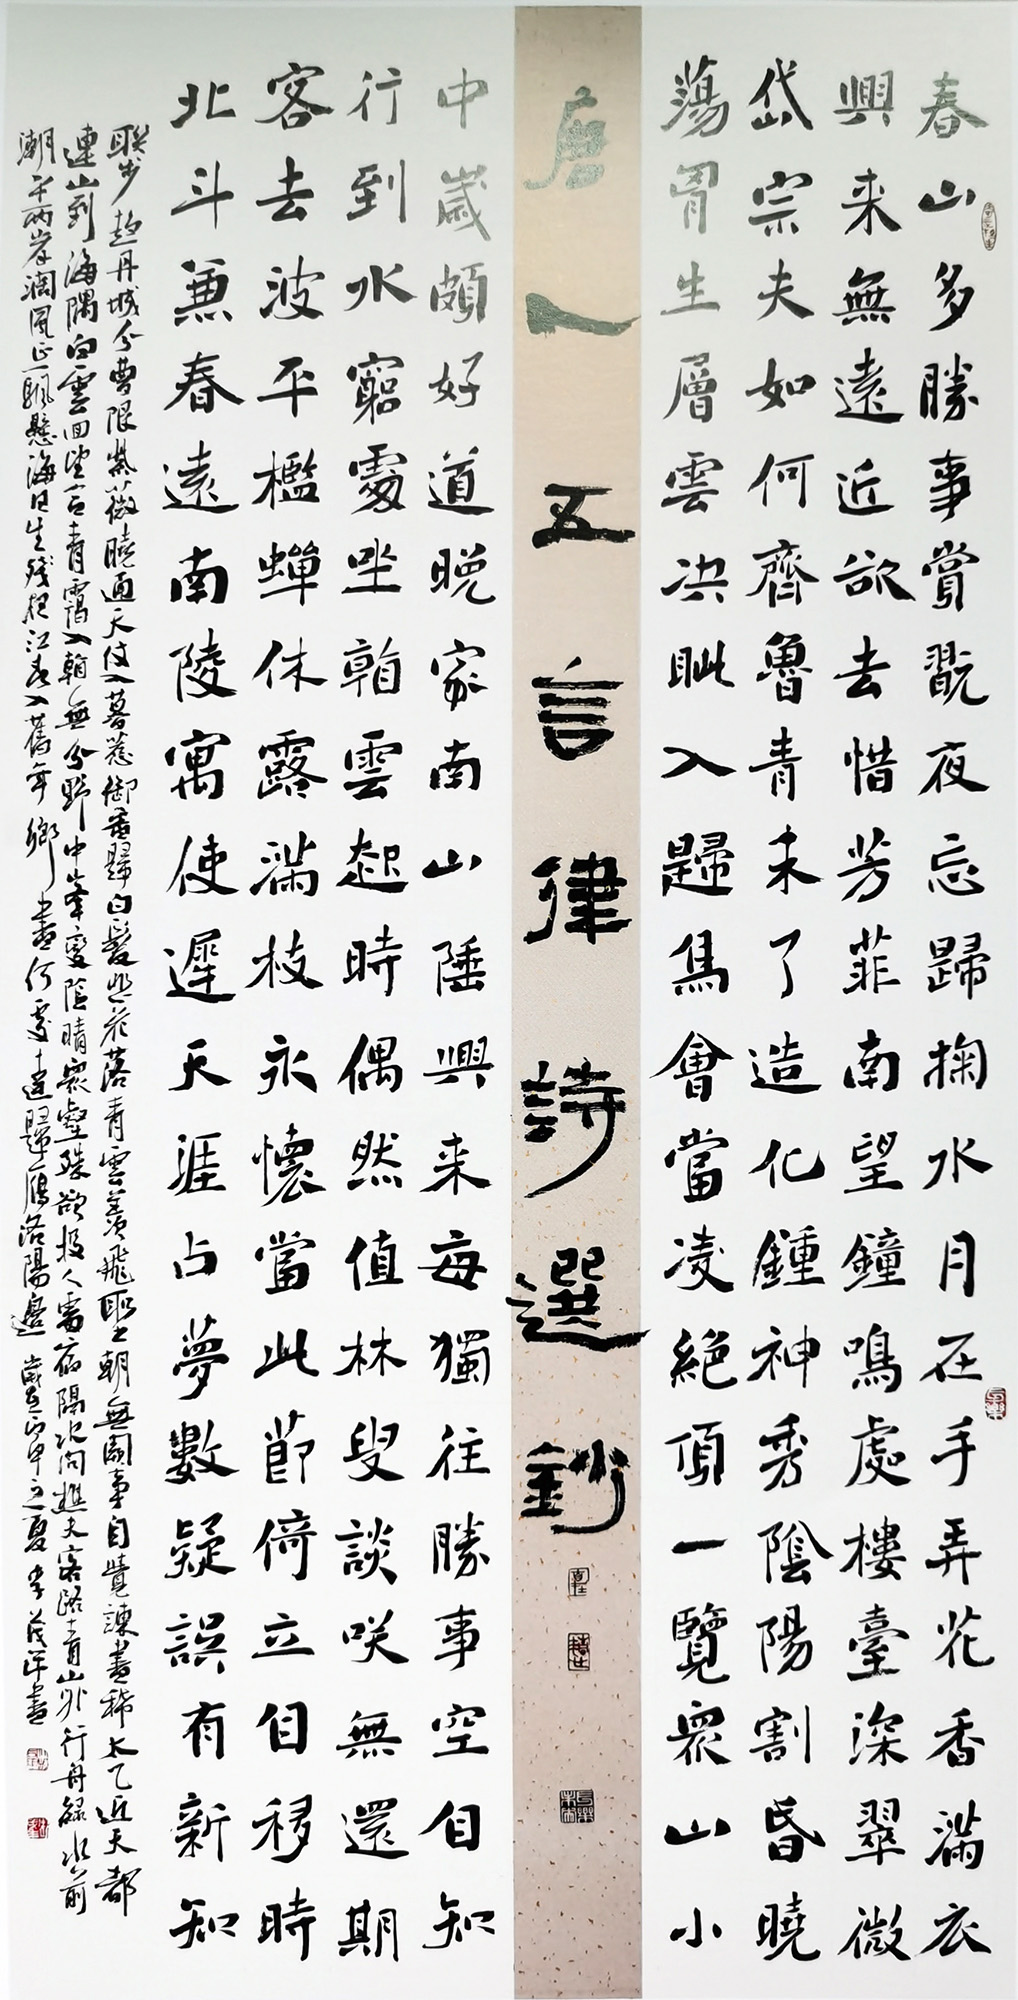 春山多勝事賞翫夜忘歸掬水月在手弄花香滿衣
興来無遠近欲去惜芳菲南望鐘鳴處樓臺深翠微
岱宗夫如何齊魯青未了造化鍾神秀陰陽割昏曉
蕩胷生層雲决眦入歸鳥會當凌絕頂一覽衆山小
唐人五言律詩選鈔
中歲頗好道晚家南山陲興来每獨往勝事空自知
行到水窮處坐翰雲起時偶然值林叟談咲無還期
客去波平檻蟬休露滿枝永懷當此節倚立自移時
北斗兼春遠南陵寓使遲天涯占夢數疑誤有新知
聯步趨丹墀分曹限紫薇曉通天仗入暮惹御香歸白髮悲花落青雲羨飛聖朝無闕事自覺諫書稀太乙近天都
連山到海隅白雲回望合青靄入翰無分野中峯變陰晴衆壑殊欲投人處宿隔水問樵夫客路青山外行舟綠水前
潮平兩岸闊風正一帆懸海日生殘夜江春入舊年鄉書何處達歸雁洛陽邊 歲在丙申之夏 李茂 書